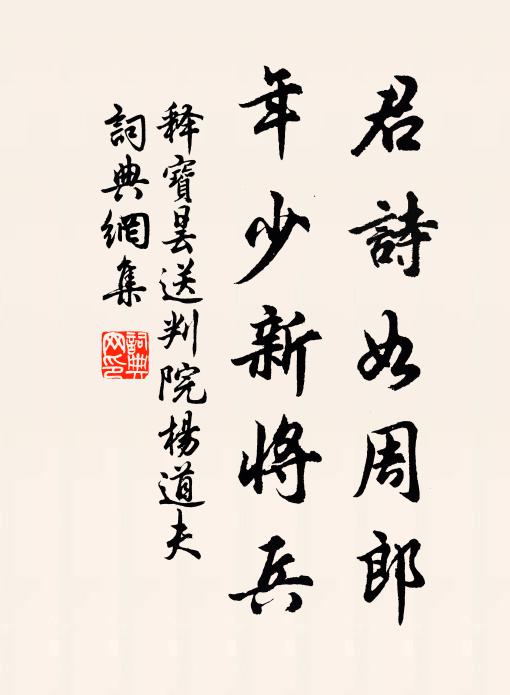 君詩如周郎
年少新將兵
釋寶曇送判院楊道夫
詞典網集
詞典網印